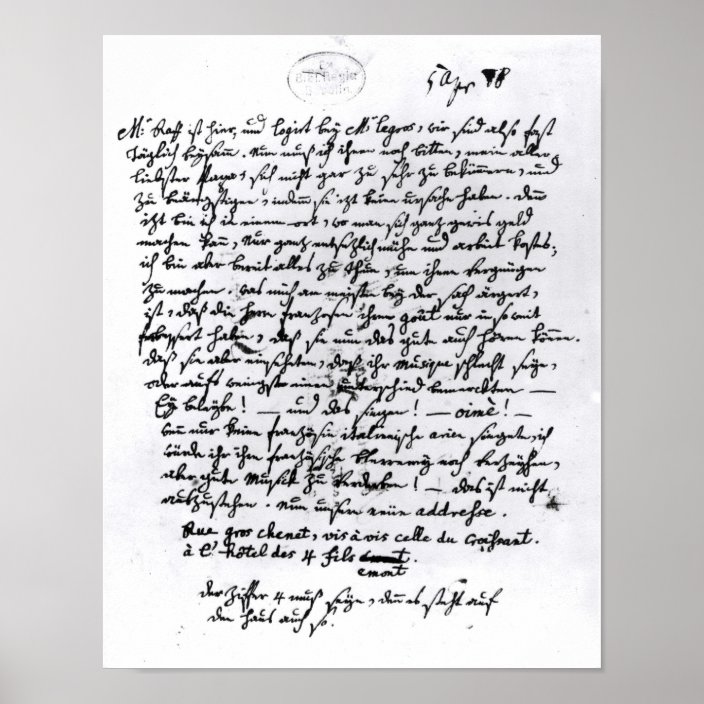 5 Apr 78
Mr. Raff ist hier, und logirt bey Mr. Legros, wir sind also fast
täglich beysamm. Nun muß ich ihnen noch bitten, mein aller
liebster Papa, sich nicht gar zu sehr zu bekümmern, und
zu beängstigen, indemm sie izt keine ursache haben. denn
izt bin ich in einem ort, wo man sich ganz gewis geld
machen kann, Nur ganz entsetzlich mühe und arbeit kostes;
ich bin aber bereit alles zu thun, um ihnen vergnügen
zu machen. was mich am meisten bey der sach ärgert,
ist, daß die herrn franzosen ihren goût nur in so weit
verbessert haben, daß sie nun das gute auch hören können.
daß sie aber einsheten, daß ihr Musique schlecht seye,
oder aufs wenigste einen unterschied bemerckten —
Ey beleybe! — und das singen! — oimè! —
wenn nur keine französin italienische arien singete, ich
würde ihr ihre französische Plererey noch verzeyhen,
aber gute Musick zu verderben! — das ist nicht
auszustehen. Nun unsere neüe addresse.
Rue gros chenet, vis à vis celle du Croissant.
à l'hôtel des 4 fils
emont
der Ziffer 4 muß seyn, denn es steht auf
den haus auch so.